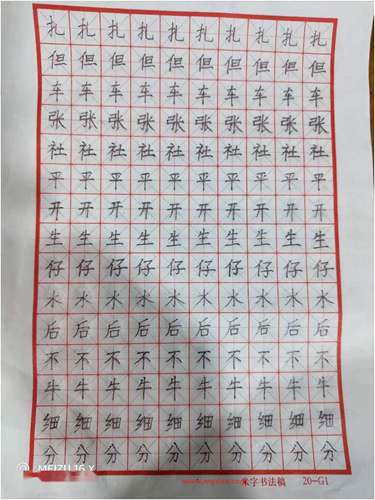 扎 扎 扎 扎 扎 扎 扎 扎 扎 扎
但 但 但 但 但 但 但 但 但 但
车 车 车 车 车 车 车 车 车 车
张 张 张 张 张 张 张 张 张 张
社 社 社 社 社 社 社 社 社 社
平 平 平 平 平 平 平 平 平 平
开 开 开 开 开 开 开 开 开 开
生 生 生 生 生 生 生 生 生 生
仔 仔 仔 仔 仔 仔 仔 仔 仔 仔
水 水 水 水 水 水 水 水 水 水
后 后 后 后 后 后 后 后 后 后
不 不 不 不 不 不 不 不 不 不
牛 牛 牛 牛 牛 牛 牛 牛 牛 牛
细 细 细 细 细 细 细 细 细 细
分 分 分 分 分 分 分 分 分 分
米字书法稿 20-G1
MEIZU 16 X